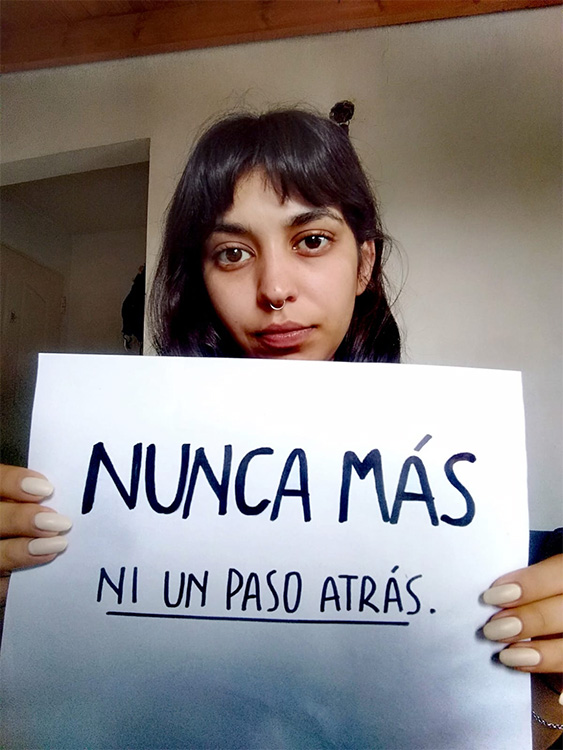 NUNCA MÁS
NI UN PASO ATRÁS.